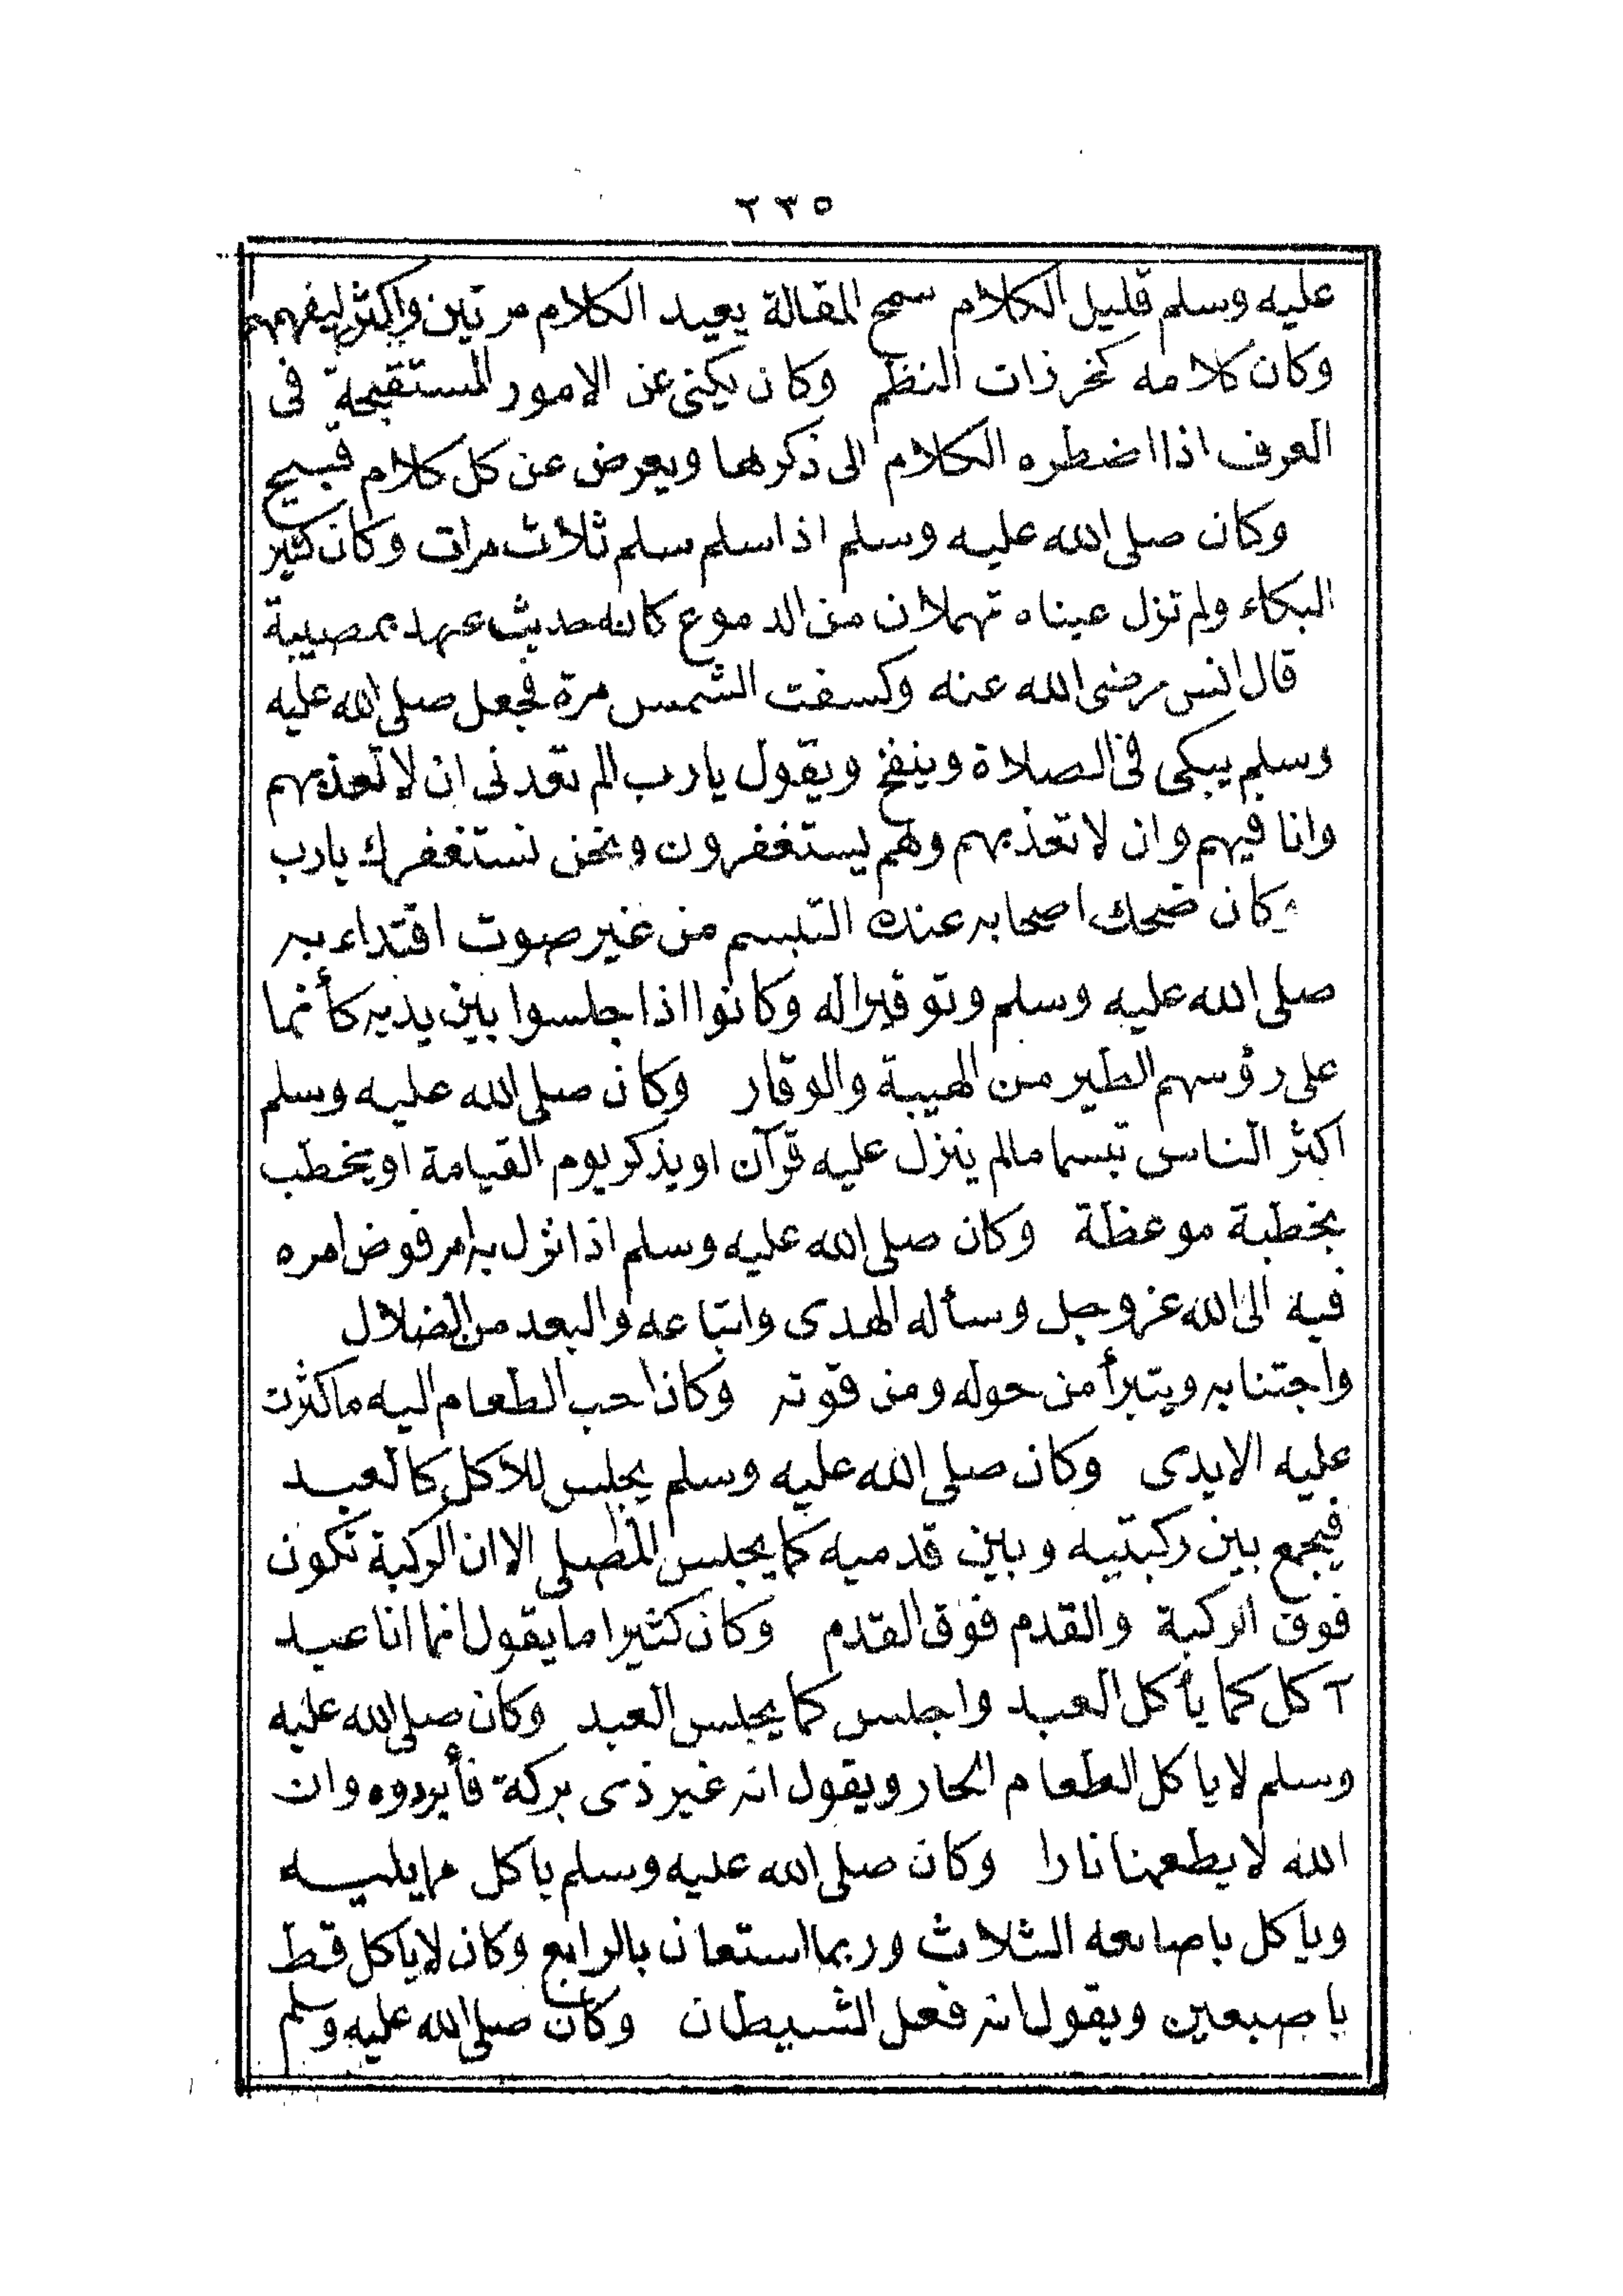 ٢٣٥
عليه وسلم قليل الكلام سمح المقالة يعيد الكلام مرتين واكثر ليفهم
وكان كلامه كخرزات النظم وكان يكنى عن الامور المستقبحة فى
العرف اذا اضطره الكلام الى ذكرها ويعرض عن كل كلام قبيح
وكان صلى الله عليه وسلم اذا سلم سلم ثلاث مرات وكان كثير
البكاء ولم تزل عيناه تهملان من الدموع كانه حديث عهد بمصيبة
قال انس رضى الله عنه وكسفت الشمس مرة فجعل صلى الله عليه
وسلم يبكى فى الصلاة وينفخ ويقول يارب الم تعدنى ان لا تعذبهم
وانا فيهم وان لا تعذبهم وهم يستغفرون ونحن نستغفرك يارب
وكان ضحك اصحابه عنده التبسم من غير صوت اقتداء به
صلى الله عليه وسلم وتوقيرا له وكانوا اذا جلسوا بين يديه كأنما
على رؤسهم الطير من الهيبة والوقار وكان صلى الله عليه وسلم
اكثر الناس تبسما مالم ينزل عليه قرآن او يذكر يوم القيامة او يخطب
بخطبة موعظة وكان صلى الله عليه وسلم اذا نزل به امر فوض امره
فيه الى الله عز وجل وسأله الهدى واتباعه والبعد من الضلال
واجتنابه ويتبرأ من حوله ومن قوته وكان احب الطعام اليه ما كثرت
عليه الايدى وكان صلى الله عليه وسلم يجلس للاكل كالعبد
فيجمع بين ركبتيه وبين قدميه كما يجلس المصلى الا ان الركبة تكون
فوق الركبة والقدم فوق القدم وكان كثيرا ما يقول انما انا عبد
آكل كما يأكل العبد واجلس كما يجلس العبد وكان صلى الله عليه
وسلم لا ياكل الطعام الحار ويقول انه غير ذى بركة فأبردوه وان
الله لا يطعمنا نارا وكان صلى الله عليه وسلم ياكل مما يليه
وياكل باصابعه الثلاث وربما استعان بالرابع وكان لا ياكل قط
باصبعين ويقول انه فعل الشيطان وكان صلى الله عليه وسلم